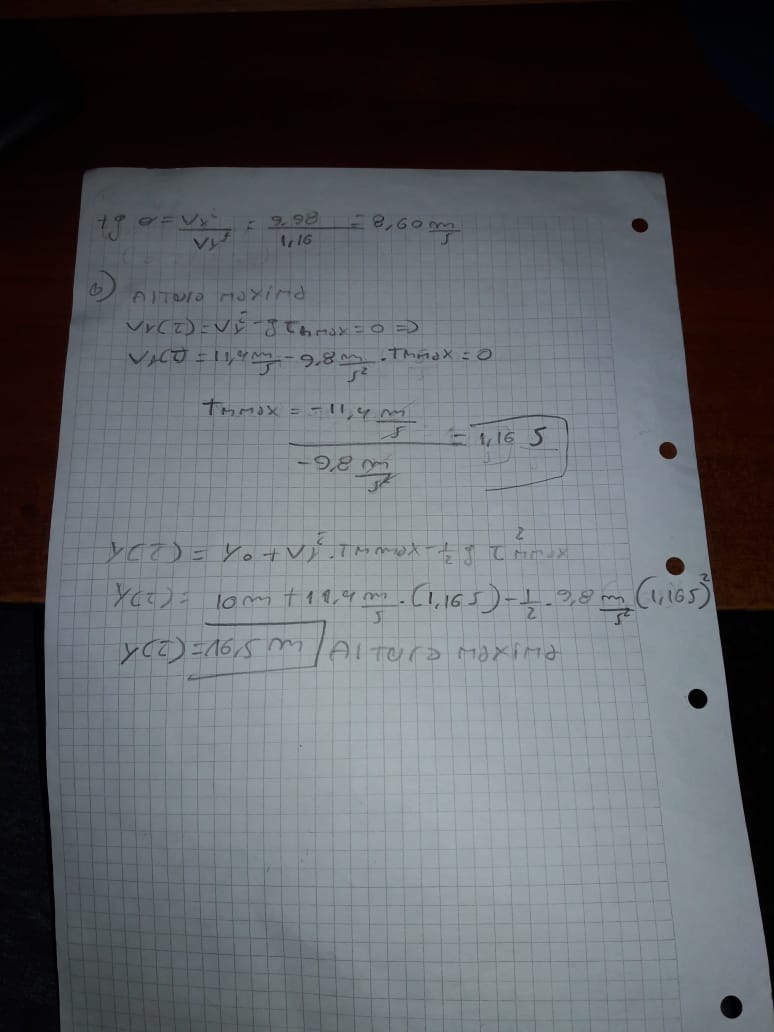 tg α = Vx/Vyi = 9,98/1,16 = 8,60 m/s
b) Altura maxima
Vy(2) = Vyi - g t hmax = 0 =>
Vy(2) = 11,4 m/s - 9,8 m/s² · t hmax = 0
t hmax = -11,4 m/s / -9,8 m/s² = 1,16 s
Y(2) = Yo + Vyi · t hmax - 1/2 g t² hmax
Y(2) = 10 m + 11,4 m/s · (1,16 s) - 1/2 · 9,8 m/s² (1,16 s)²
Y(2) = 16,5 m Altura maxima